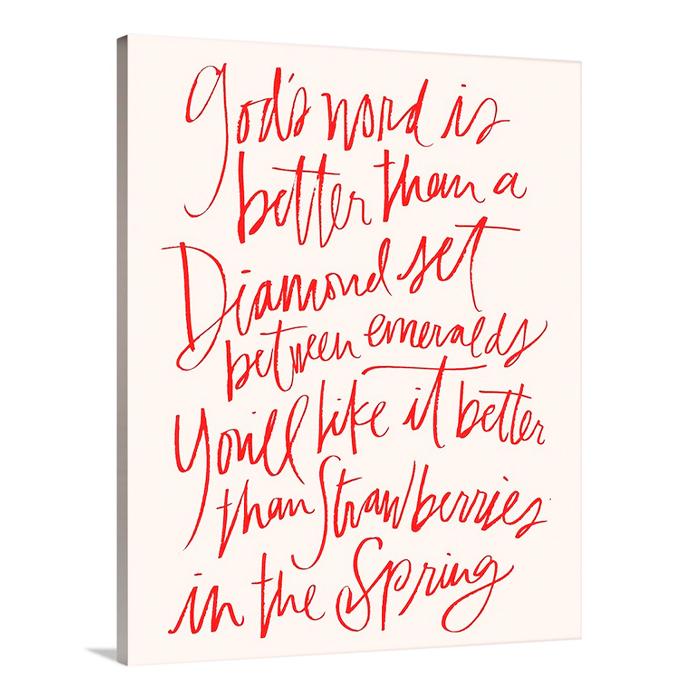 God's word is
better than a
Diamond set
between emeralds
You'll like it better
than Strawberries
in the Spring